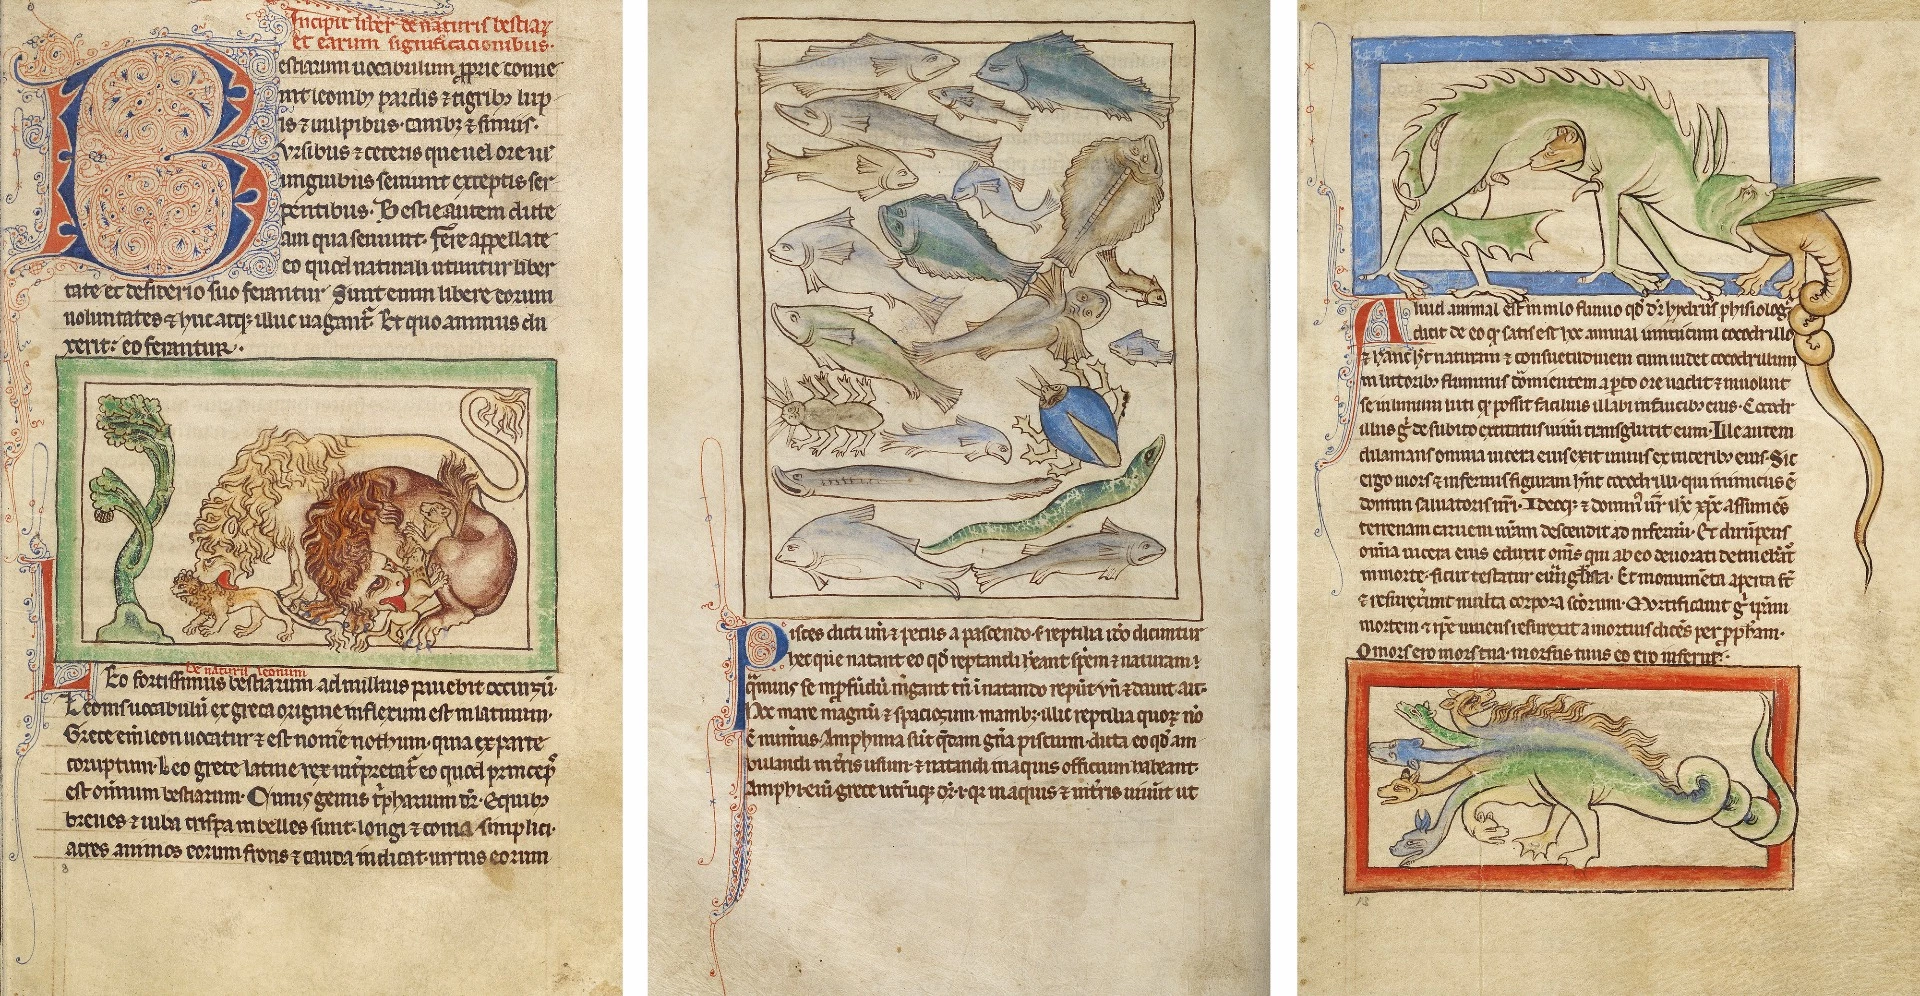 Incipit liber de naturis bestiar
et earum significacionibus.
Bestiarum uocabulum proprie conue
nit leonib; pardis ⁊ tigrib; lup
is ⁊ uulpibus. canib; ⁊ simiis.
Vrsibus ⁊ ceteris que uel ore uel
unguibus seuiunt exceptis ser
pentibus. Bestie autem dicte
am qua seuiunt. Fere appellate
eo quod naturali utuntur liber
tate et desiderio suo ferantur. Sunt enim libere eorum
uoluntates ⁊ huc atq; illuc uagant̄. Et quo animus du
xerit: eo ferantur.
de naturis leonum
Leo fortissimus bestiarum ad nullius pauebit occursū.
Leonis uocabulū ex greca origine inflexum est in latinum.
Grece eni leon uocatur ⁊ est nom̄e nothum. quia ex parte
coruptum. Leo grece latine rex int̄pretat̄ eo quod princep̄
est omnium bestiarum. Cuius genus t̄pharium d̄r. Equib;
breues ⁊ iuba crispa inbelles sunt. longi ⁊ coma simplici.
acres animos eorum frons ⁊ cauda indicat. uirtus eorum
8
Pisces dicti un̄ ⁊ pecus a pascendo. s̄ reptilia id̄o dicuntur
hec que natant eo qd̄ reptandi h̄eant spēm ⁊ naturam.
q̄muis se in p̄fūdū m̄gant tn̄ i natando repūt vn̄ ⁊ dauit ait.
Hoc mare magnū ⁊ spaciosum manib; illic reptilia quor; nō
ē num̄us. Amphiuia sūt q̄dam gn̄a piscium. dicta eo qd̄ am
bulandi in t̄ris usum. ⁊ natandi in aquis officium habeant.
Amphi. eni grece utrūq; dr̄. i. qr̄ in aquis ⁊ int̄ris uiuūt ut
Aliud animal est in nilo fluuio qd̄ dr̄ hydrus phisiolog;
dicit de eo q̄ satis est hoc animal inimicum cocodrillo
⁊ hanc h̄t naturam ⁊ consuetudinem cum uidet cocodrillum
in littorib; fluminis dormientem ap̄to ore uadit ⁊ inuoluit
se in limum luti q̄ possit facilius illabi in faucib; eius. Cocodr
illus ḡ de subito excitatus uiuū transglutit eum. Ille autem
dilanians omnia uicera eius exit uiuus ex uicerib; eius. Sic
ergo mors ⁊ infernus figuram h̄nt cocodrilli. qui inimicus ē
domini saluatoris nr̄i. Ideoq; ⁊ domin' nr̄ ih̄c xp̄c assumēs
terrenam carnem nr̄am descendit ad infernū. Et dirūpens
omnia uicera eius eduxit om̄s qui ab eo deuorati detinebāt̄
in morte. sicut testatur euūglista. Et monumēta aperta sūt
⁊ resurexerunt multa corpora sc̄orum. Mortificauit ḡ ipsam
mortem ⁊ ip̄e uiuens resurexit a mortuis dicēs per pp̄ham.
O mors ero mors tua. morsus tuus eo ero inferne.
13